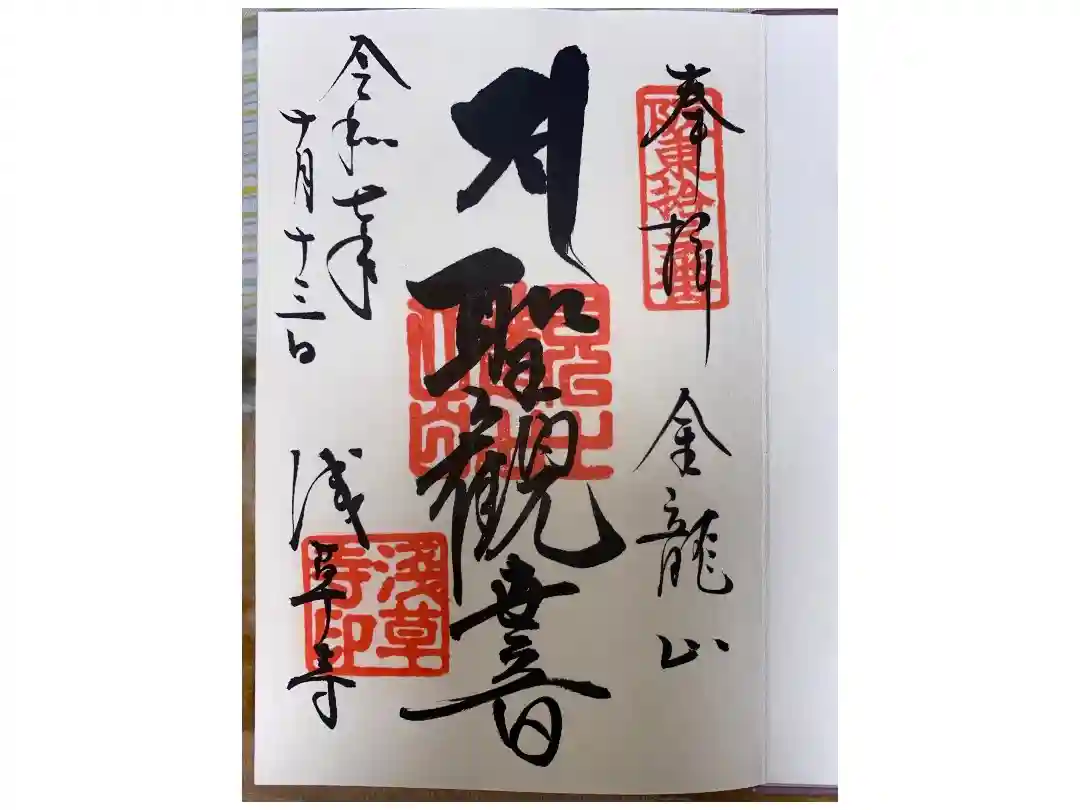 奉拝
金龍山
阪東拾三番
聖觀世音
令和七年
十月十三日
浅草寺
淺草寺印